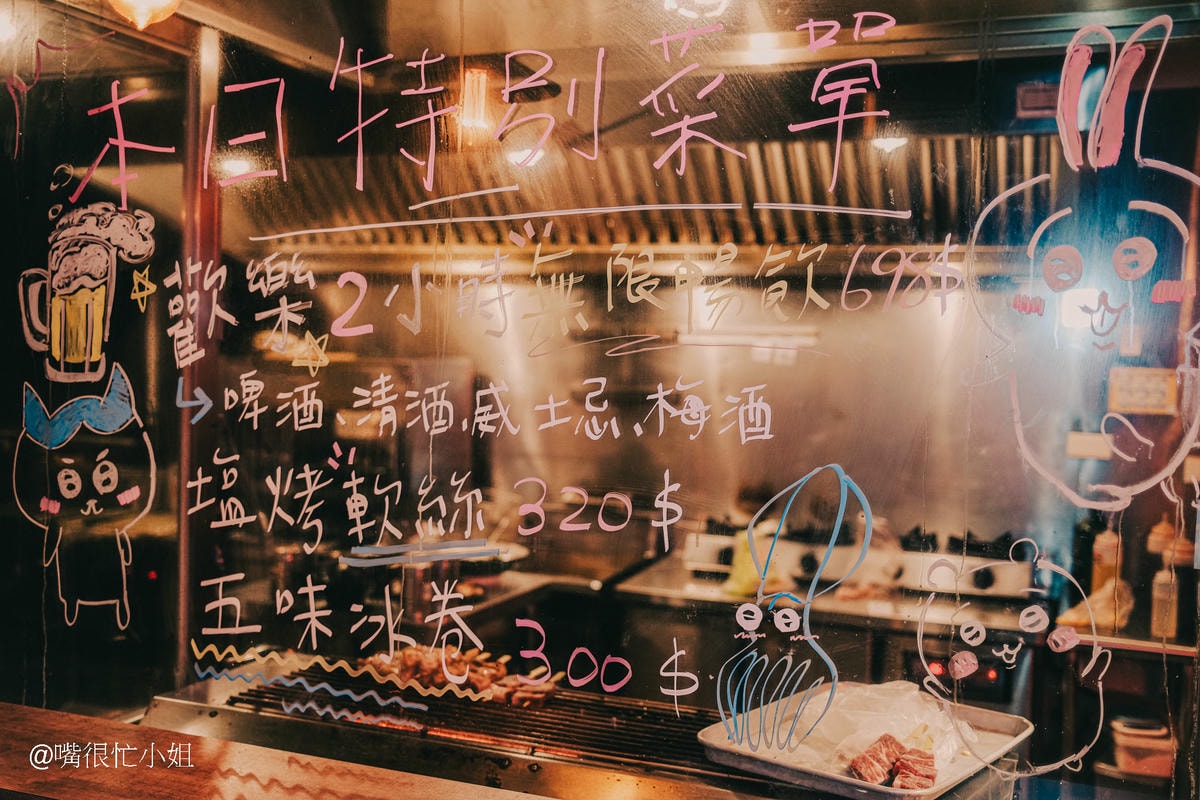 本日特別菜單
歡樂2小時無限暢飲698$
啤酒、清酒、威士忌、梅酒
塩烤軟絲 320$
五味冰卷 300$
@嘴很忙小姐